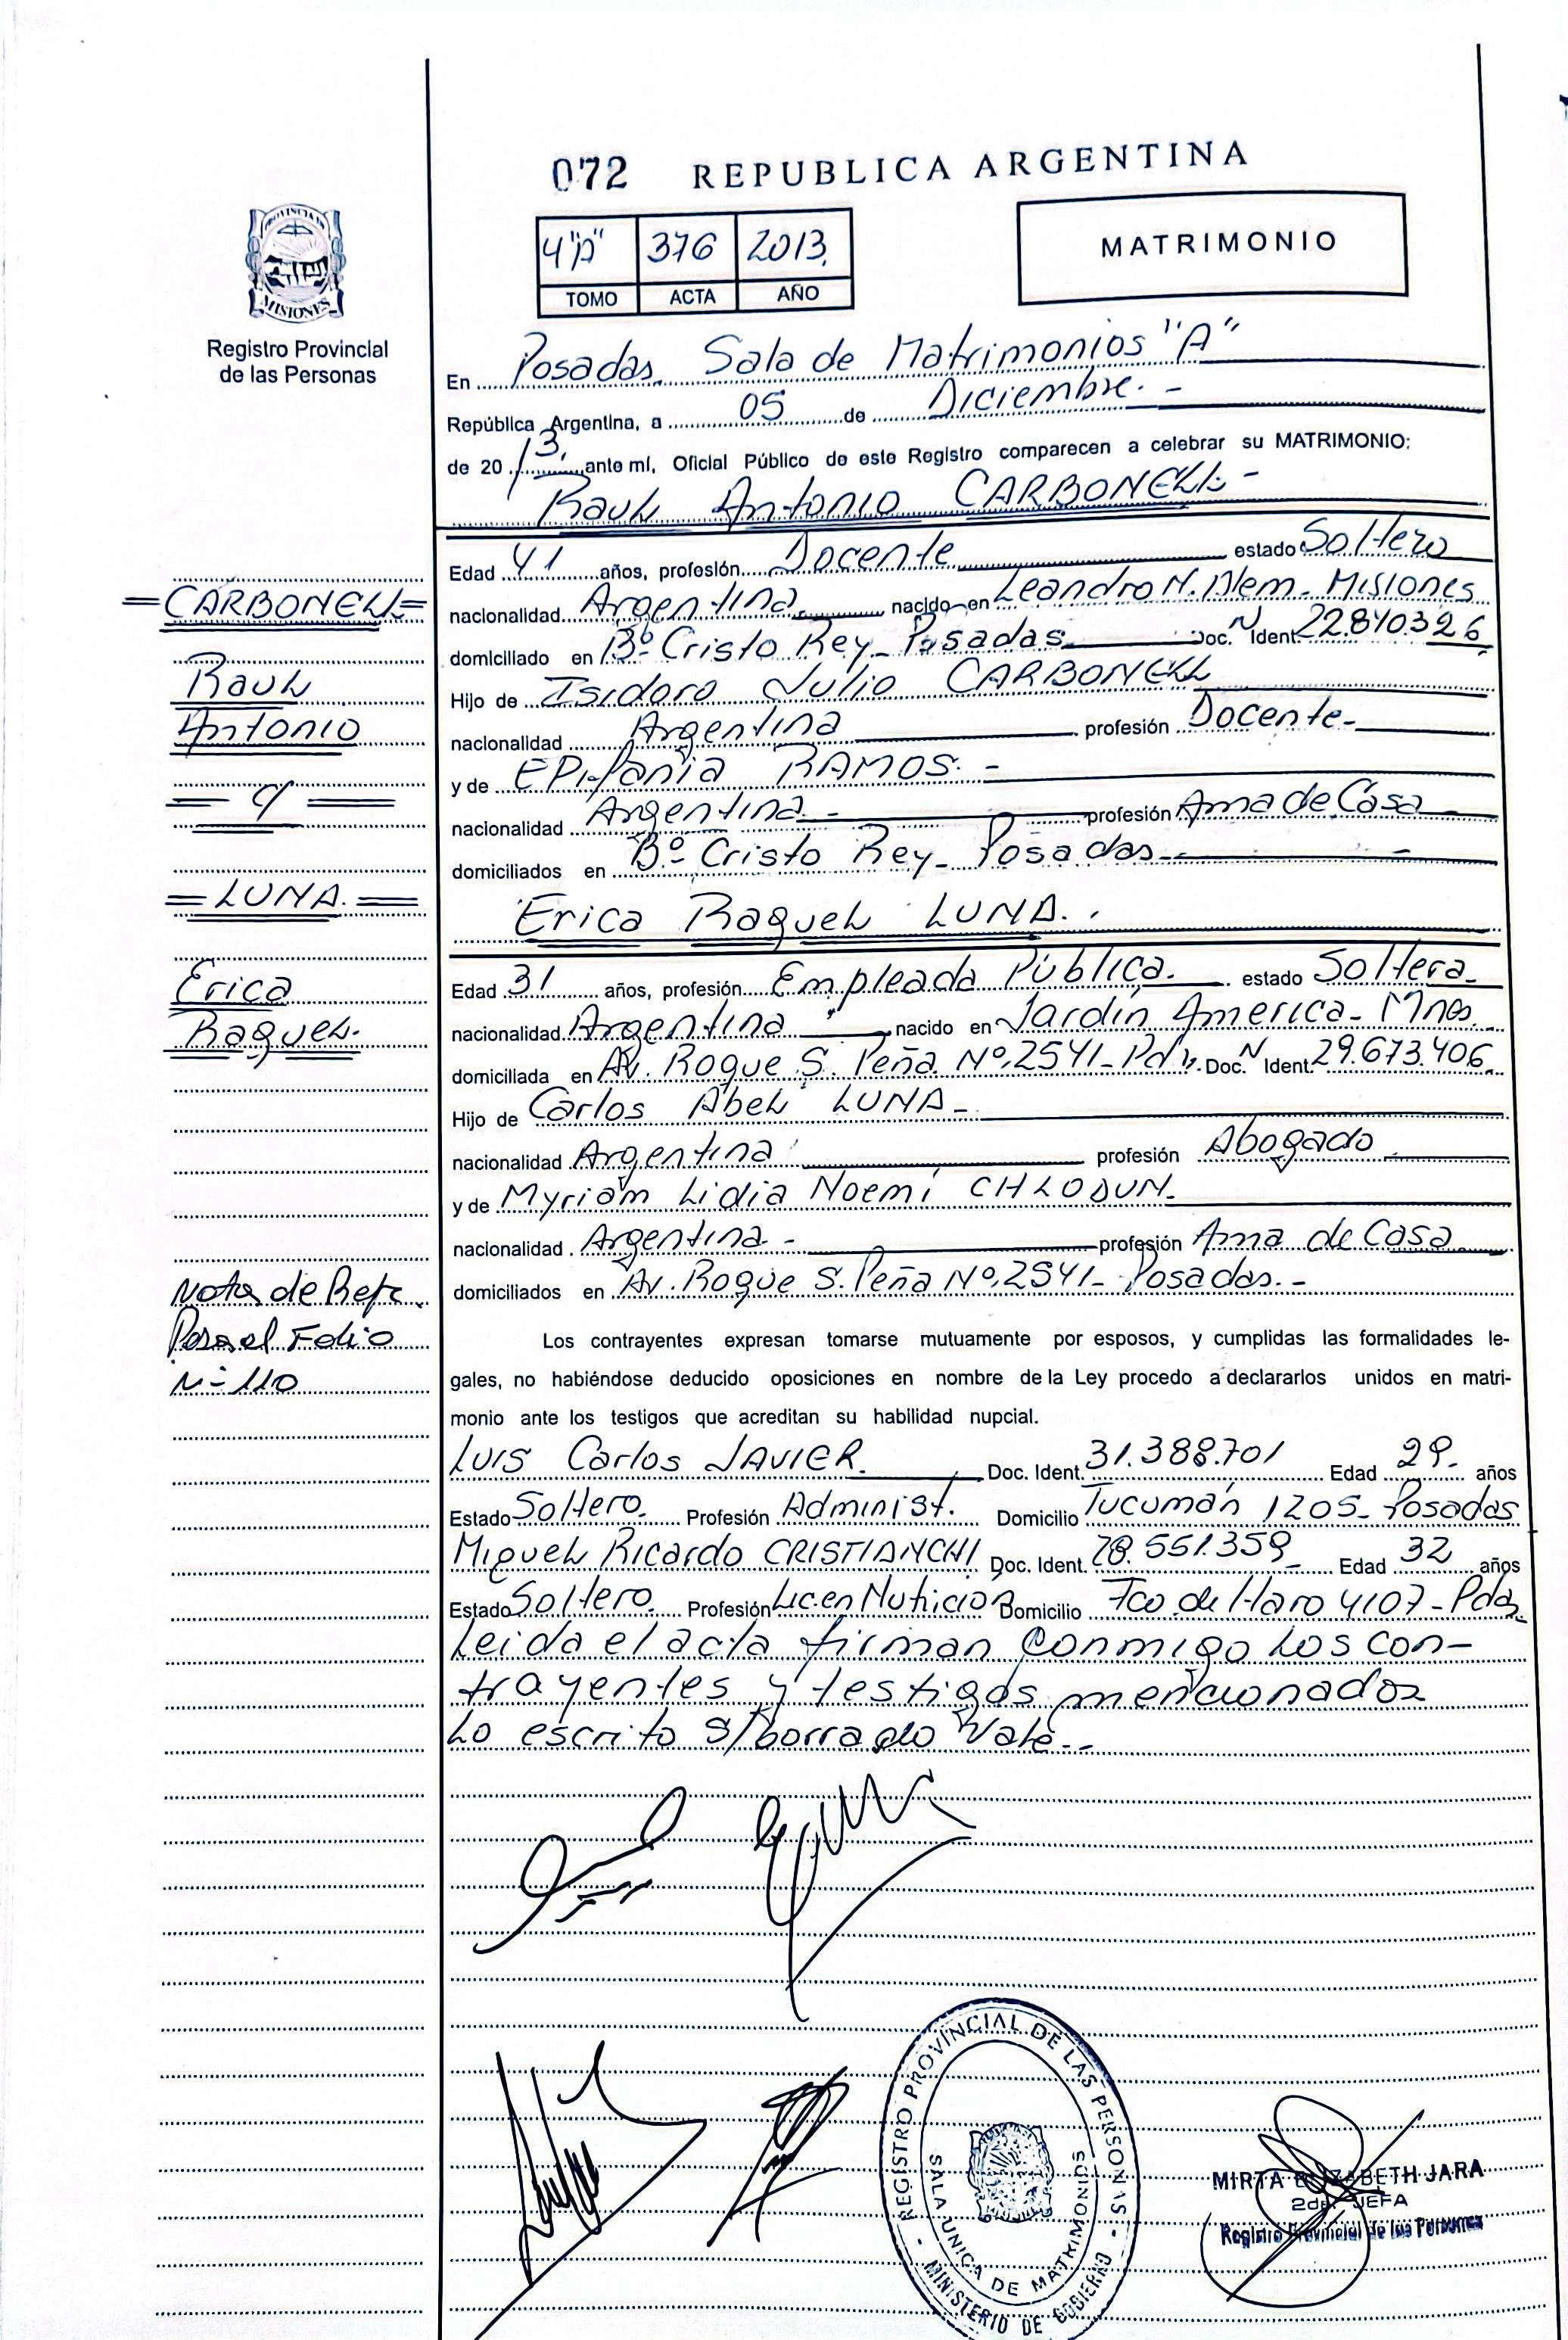 072 REPUBLICA ARGENTINA
PROVINCIA DE
MISIONES
Registro Provincial
de las Personas
4"A" 376 2013
TOMO ACTA AÑO
MATRIMONIO
En Posadas, Sala de Matrimonios "A"
República Argentina, a 05 de Diciembre. -
de 2013, ante mí, Oficial Público de este Registro comparecen a celebrar su MATRIMONIO:
Raul Antonio CARBONELL -
Edad 41 años, profesión Docente estado Soltero
nacionalidad Argentina nacido en Leandro N. Alem - Misiones
domiciliado en Bº Cristo Rey - Posadas Doc. N Ident. 22840.326
Hijo de Isidoro Julio CARBONELL
nacionalidad Argentina profesión Docente -
y de Epifania RAMOS. -
nacionalidad Argentina - profesión Ama de Casa
domiciliados en Bº Cristo Rey - Posadas -
Erica Raquel LUNA.
Edad 31 años, profesión Empleada Pública. estado Soltera -
nacionalidad Argentina nacido en Jardín America - Mnes.
domiciliada en Av. Roque S. Peña Nº 2541 - Pdas. Doc. N Ident. 29.673.406
Hijo de Carlos Abel LUNA -
nacionalidad Argentina profesión Abogado
y de Myriam Lidia Noemí CHLODUN.
nacionalidad Argentina - profesión Ama de Casa
domiciliados en Av. Roque S. Peña Nº 2541 - Posadas. -
Los contrayentes expresan tomarse mutuamente por esposos, y cumplidas las formalidades le-
gales, no habiéndose deducido oposiciones en nombre de la Ley procedo a declararlos unidos en matri-
monio ante los testigos que acreditan su habilidad nupcial.
Luis Carlos JAVIER. Doc. Ident. 31.388.701 Edad 29. años
Estado Soltero. Profesión Administ. Domicilio Tucumán 1205 - Posadas
Miguel Ricardo CRISTIANCHI Doc. Ident. 28.551.359 Edad 32 años
Estado Soltero. Profesión Lic. en Nutrición Domicilio Fco. de Haro 4107 - Pdas.
Leida el acta firman conmigo los con-
trayentes y testigos mencionados
Lo escrito s/borrado Vale. -
=CARBONELL=
Raul
Antonio
= y =
= LUNA. =
Erica
Raquel.
Nota de Refe.
Pasa al Folio
Nº 110
REGISTRO PROVINCIAL DE LAS PERSONAS
MINISTERIO DE GOBIERNO
SALA UNICA DE MATRIMONIOS
MIRTA ELIZABETH JARA
2da JEFA
Registro Provincial de las Personas